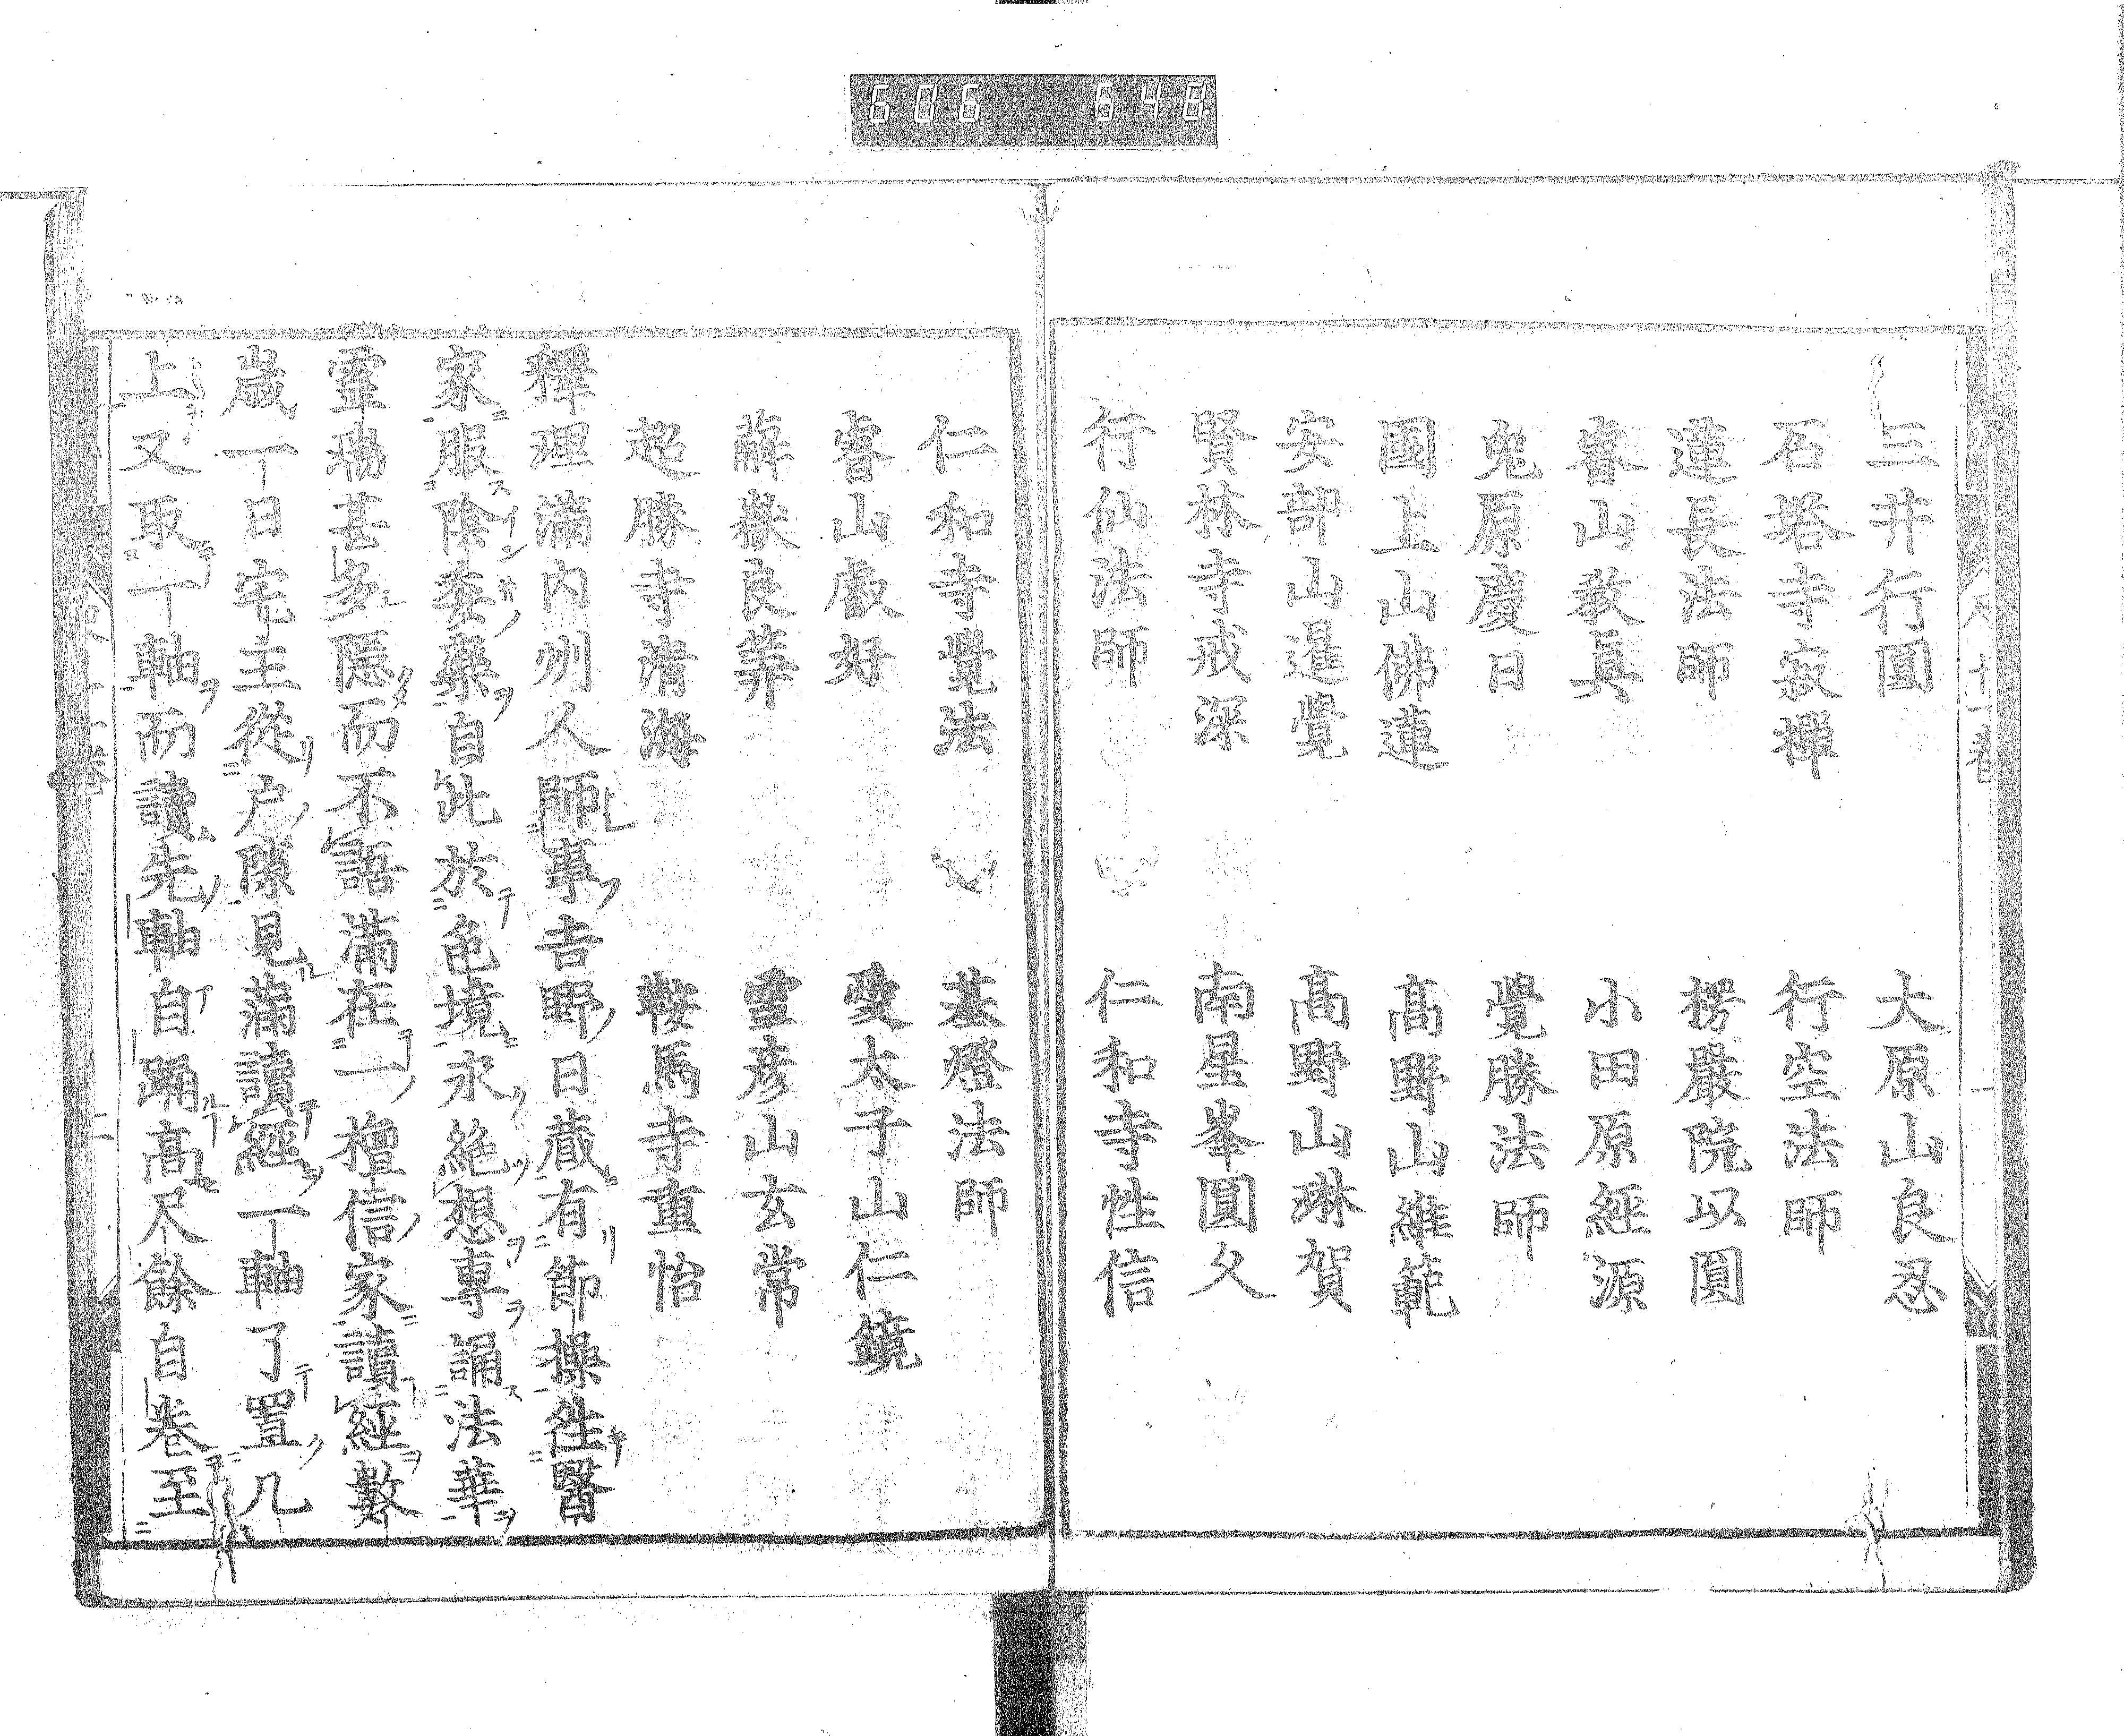 606 648
三井行圓 大原山良忍
石塔寺寂禪 行空法師
蓮長法師 楞嚴院以圓
睿山教眞 小田原經源
兔原慶日 覺勝法師
國上山佛蓮 高野山維範
安部山暹覺 高野山琳賀
賢林寺戒深 南星峯圓久
行仙法師 仁和寺性信
仁和寺覺法 基燈法師
睿山叡好 愛太子山仁鏡
薜嶽良筭 雪彦山玄常
超勝寺清海 鞍馬寺重怡
釋理滿內州人師事吉野日藏有節操徃醫
家服陰委藥自此於色境永絶想專誦法華
靈瑞甚多隱而不語滿在一檀信家讀經數
歲一日宅主從戶隙見滿讀經一軸了置几
上又取一軸而讀先軸自踊高尺餘自卷至